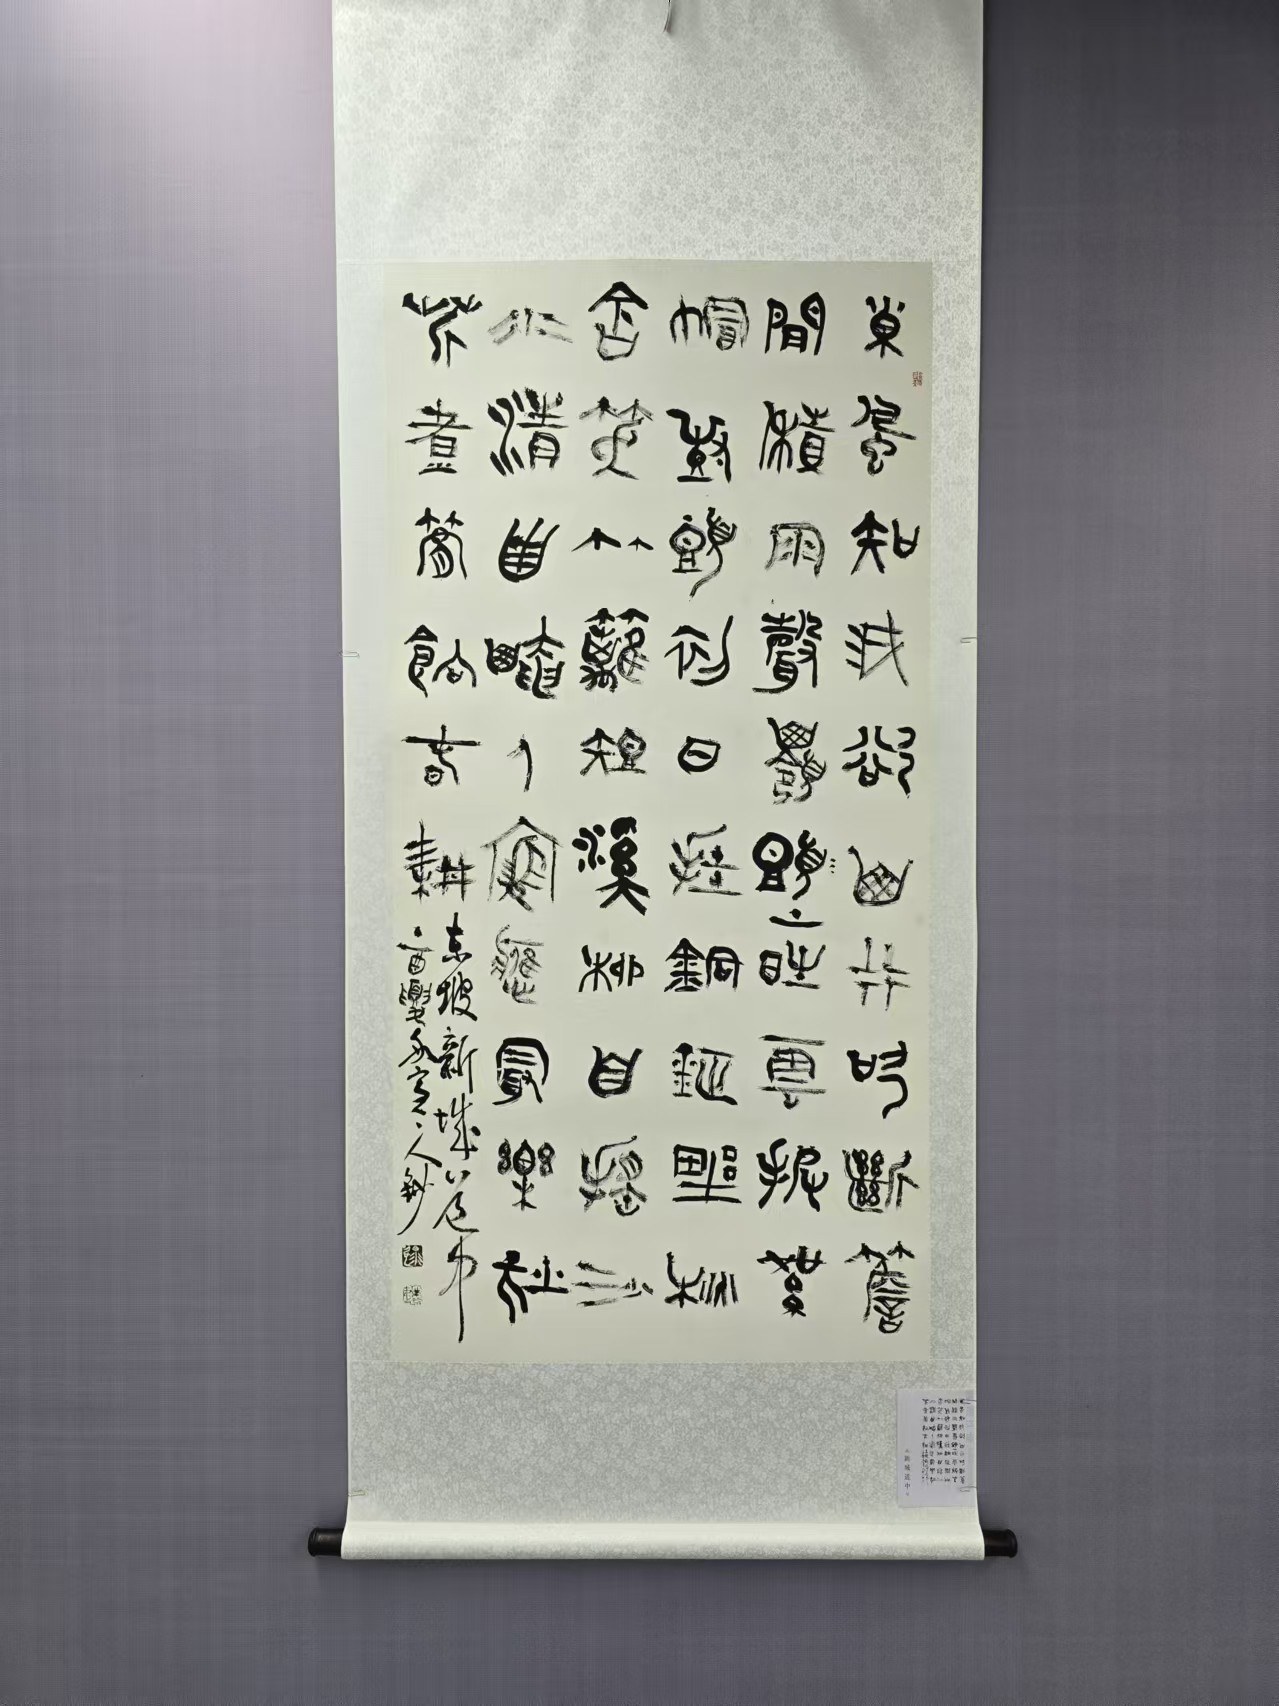 東風知我欲山行吹斷簷
間積雨聲嶺頭上晴雲披絮
帽樹頭初日掛銅鉦野桃
含笑竹籬短溪柳自搖沙
水清西崦人家應最樂燒
芹煮筍餉春耕
东坡新城道中